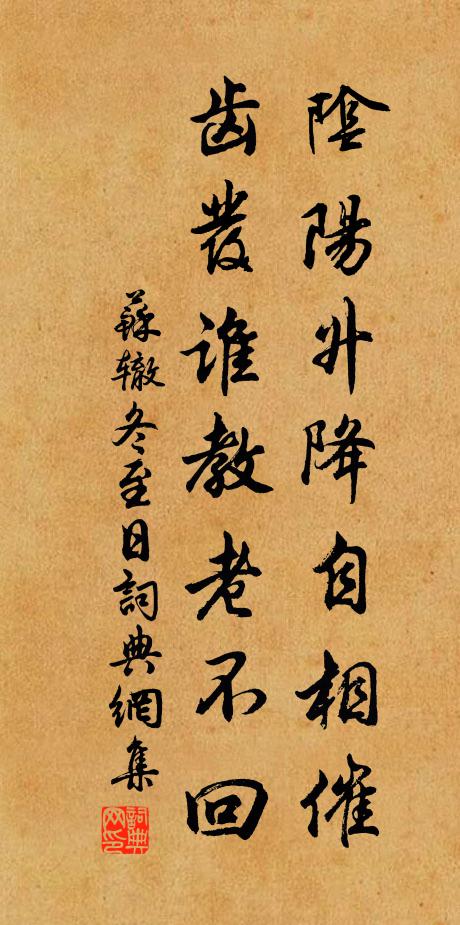 陰陽升降自相催
齒發誰教老不回
蘇辙冬至日詞典網集
詞典网印